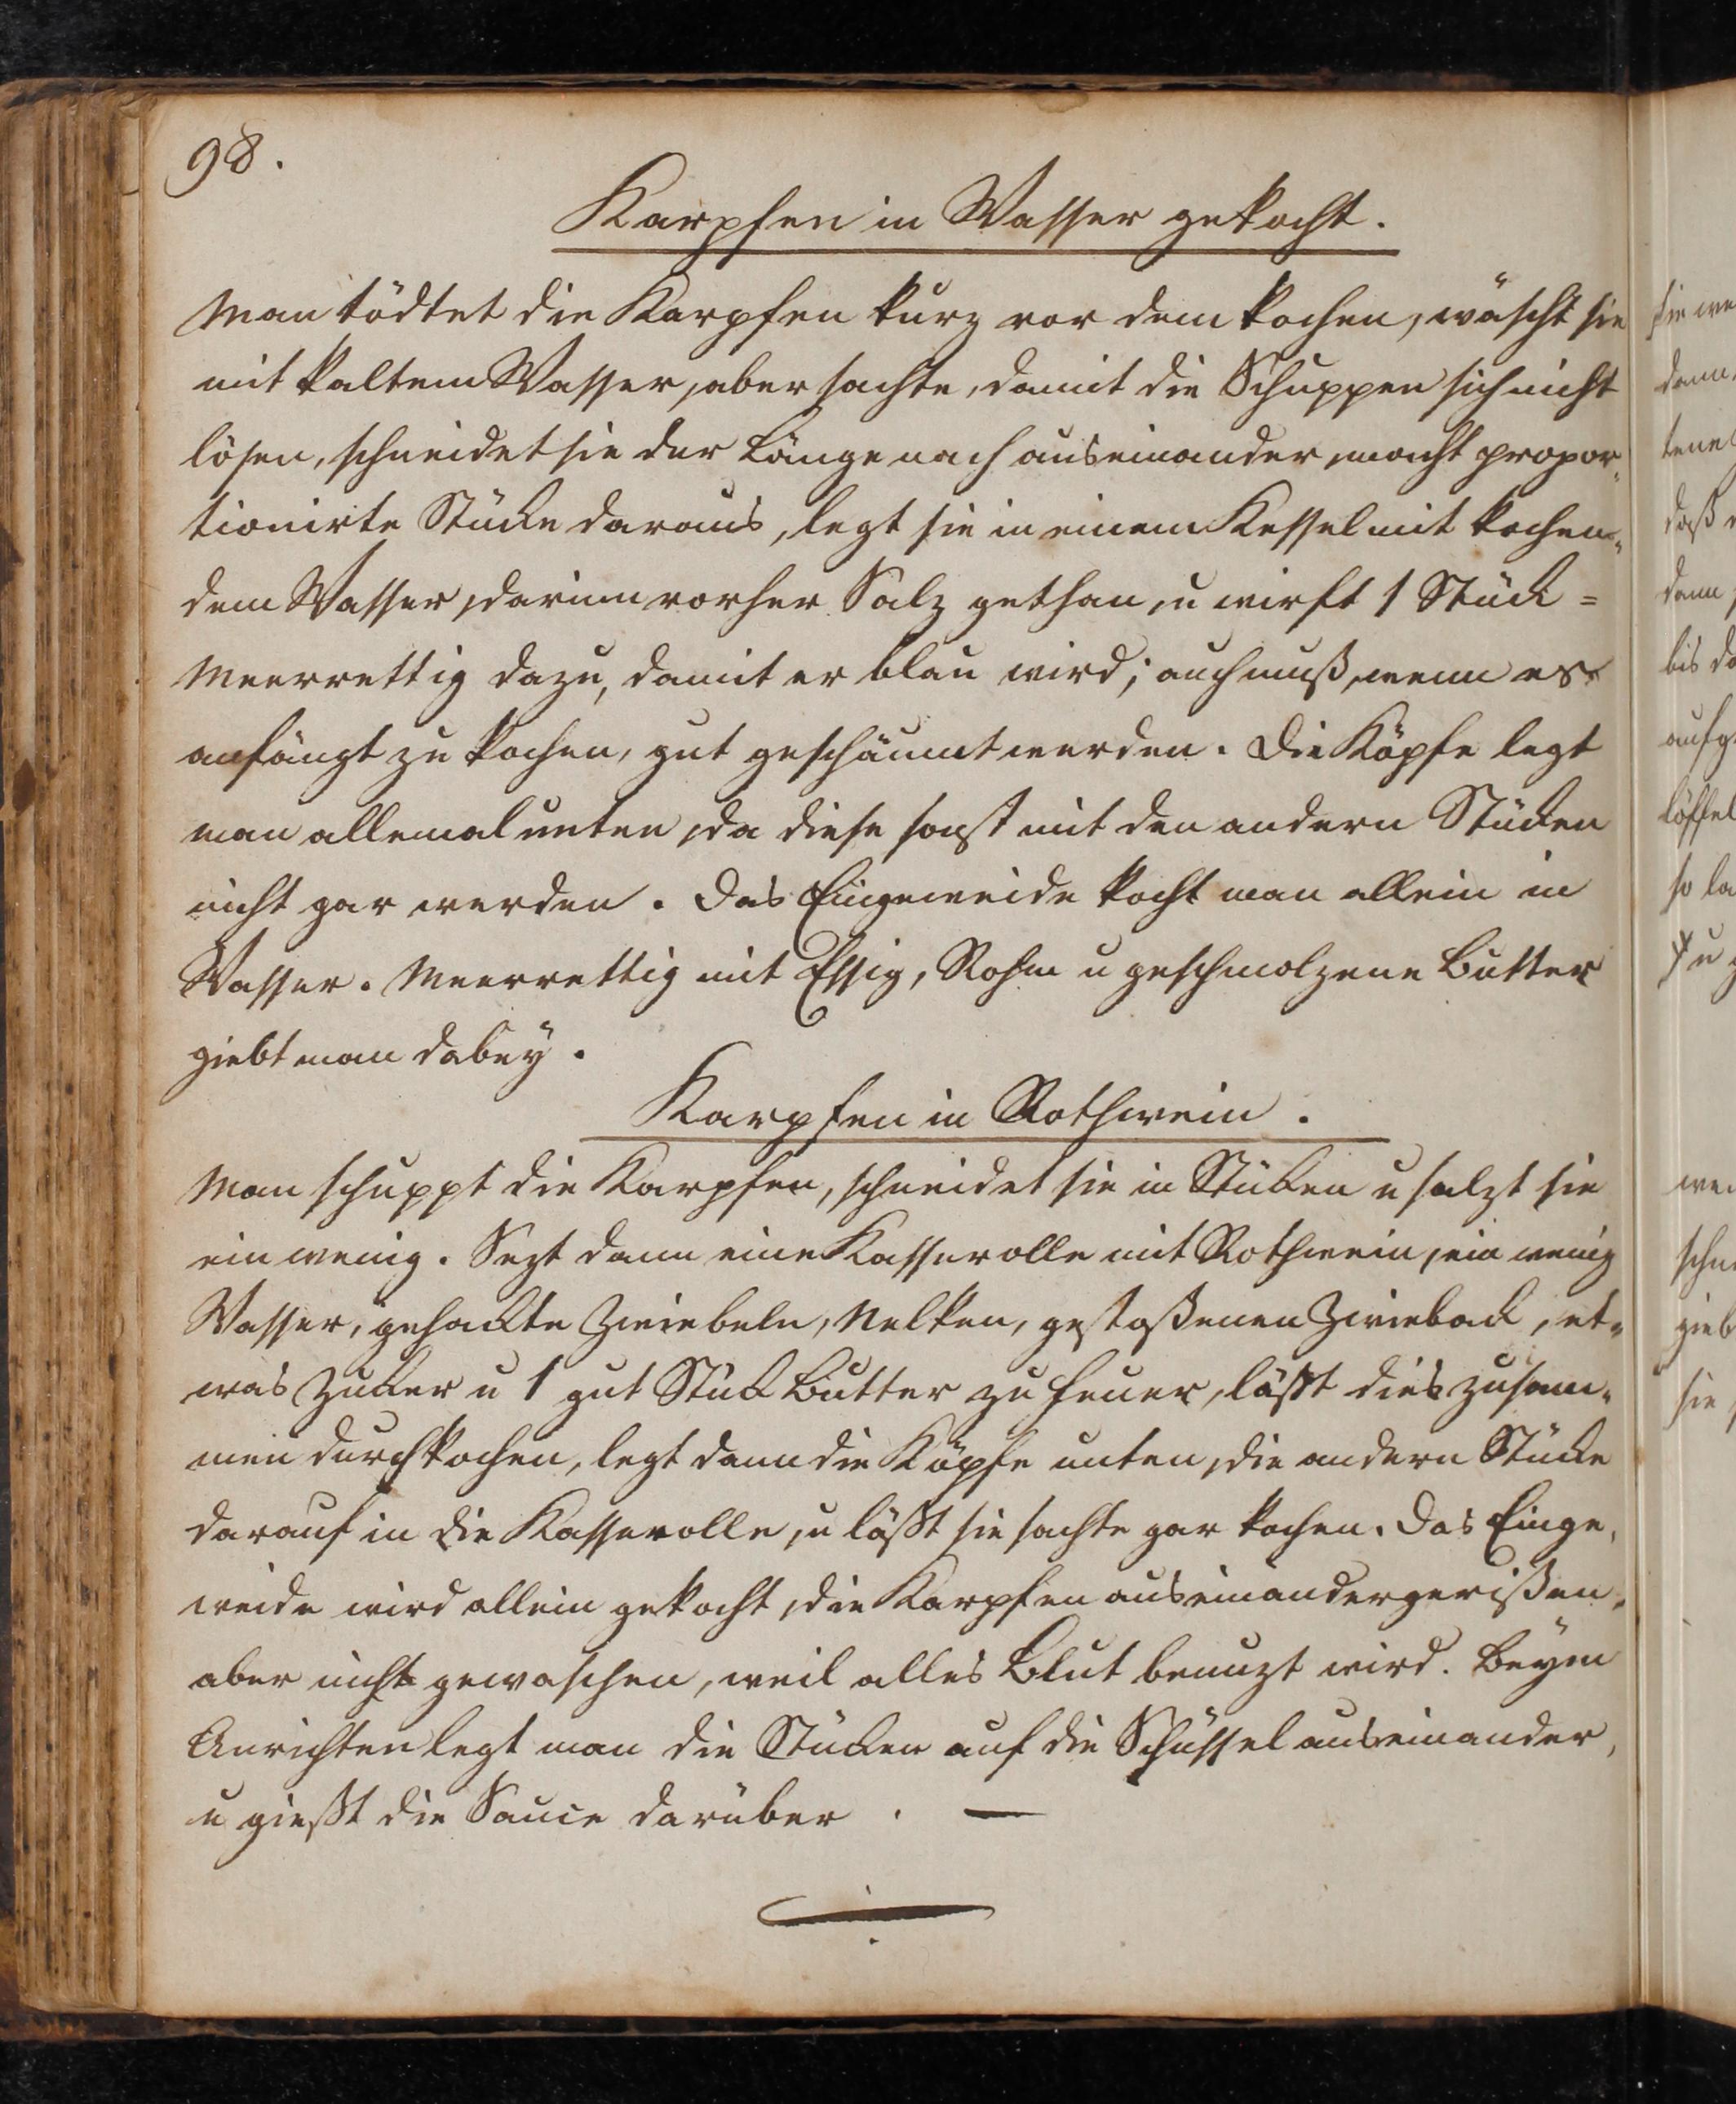 98.
Karpfen in Wasser gekocht.
Man tödtet die Karpfen kurz vor dem kochen, wäscht sie
mit kaltem Wasser, aber sachte, damit die Schuppen sich nicht
lösen, schneidet sie der Länge nach auseinander, macht propor-
tionirte Stücke daraus, legt sie in einem Kessel mit kochen-
dem Wasser, darinn vorher Salz gethan, u wirft 1 Stück =
Meerrettig dazu, damit er blau wird; auch muß, wenn es
anfängt zu kochen, gut geschäumt werden. Die Köpfe legt
man allemal unten, da diese sonst mit den andern Stücken
nicht gar werden. Das Eingeweide kocht man allein in
Wasser. Meerrettig mit Essig, Rohm u geschmolzene Butter
giebt man dabey.
Karpfen in Rothwein.
Man schuppt die Karpfen, schneidet sie in Stücken u salzt sie
ein wenig. Sezt dann eine Kasserolle mit Rothwein, ein wenig
Wasser, gehackte Zwiebeln, Nelken, gestoßenen Zwieback, et-
was Zucker u 1 gut Stück Butter zu Feuer, läßt dies zusam-
men durchkochen, legt dann die Köpfe unten, die andern Stücke
darauf in die Kasserolle, u läßt sie sachte gar kochen. Das Einge-
weide wird allein gekocht, die Karpfen auseinandergerißen,
aber nicht gewaschen, weil alles Blut benuzt wird. Beym
Anrichten legt man die Stücken auf die Schüssel auseinander,
u gießt die Sauce darüber. —